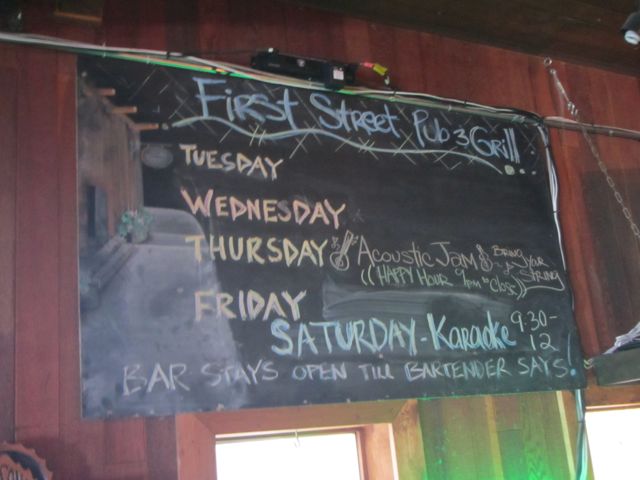 First Street Pub & Grill
TUESDAY
WEDNESDAY
THURSDAY Acoustic Jam Bring Your String
((HAPPY HOUR 9pm to Close))
FRIDAY
SATURDAY - Karaoke 9:30-12
BAR STAYS OPEN TILL BARTENDER SAYS!